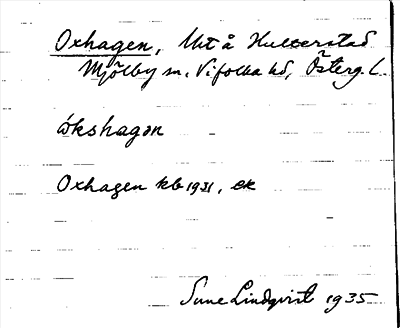 Oxhagen, Ut å Hulterstad
Mjölby sn, Vifolka hd, Österg. L.
ökshagən
Oxhagen kb 1931, ek
Sune Lindqvist 1935